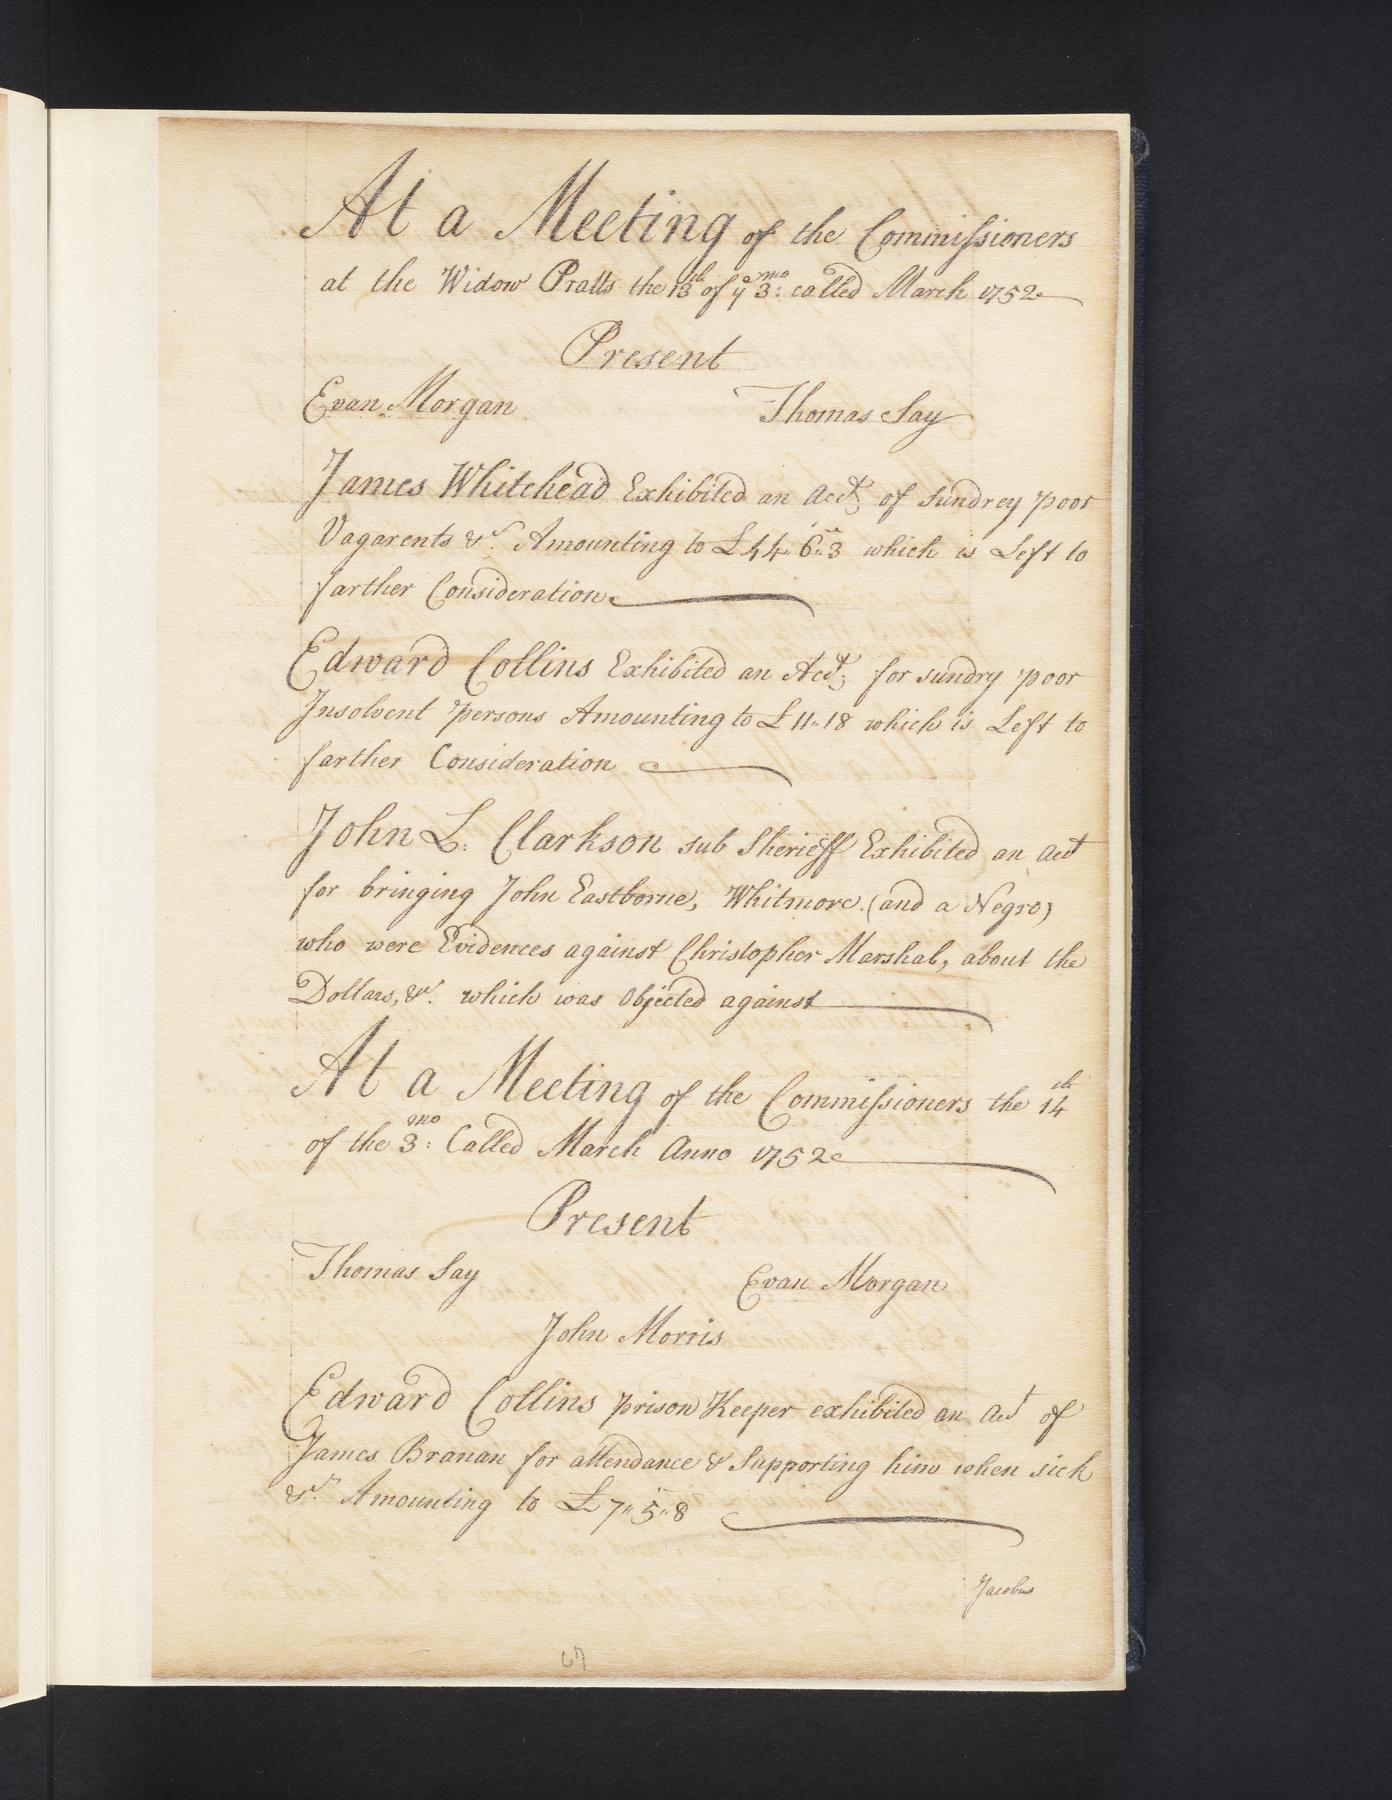 At a Meeting of the Commissioners
at the Widow Pratts the 13th of ye 3mo: called March 1752
Present
Evan Morgan Thomas Say
James Whitehead Exhibited an Acct, of sundrey poor
Vagarents &c. Amounting to £44"6"3 which is Left to
farther Consideration
Edward Collins Exhibited an Acct; for sundry poor
Insolvent persons Amounting to £11"18 which is Left to
farther Consideration
John L: Clarkson sub Sherieff Exhibited an Acct
for bringing John Eastborne, Whitmore. (and a Negro)
who were Evidences against Christopher Marshal, about the
Dollars, &c. which was Objected against
At a Meeting of the Commissioners the 14th
of the 3mo: Called March Anno 1752
Present
Thomas Say Evan Morgan
John Morris
Edward Collins prison Keeper exhibited an Acct of
James Branan for attendance & Supporting him when sick
&c. Amounting to £7"5"8
Jacobus
67